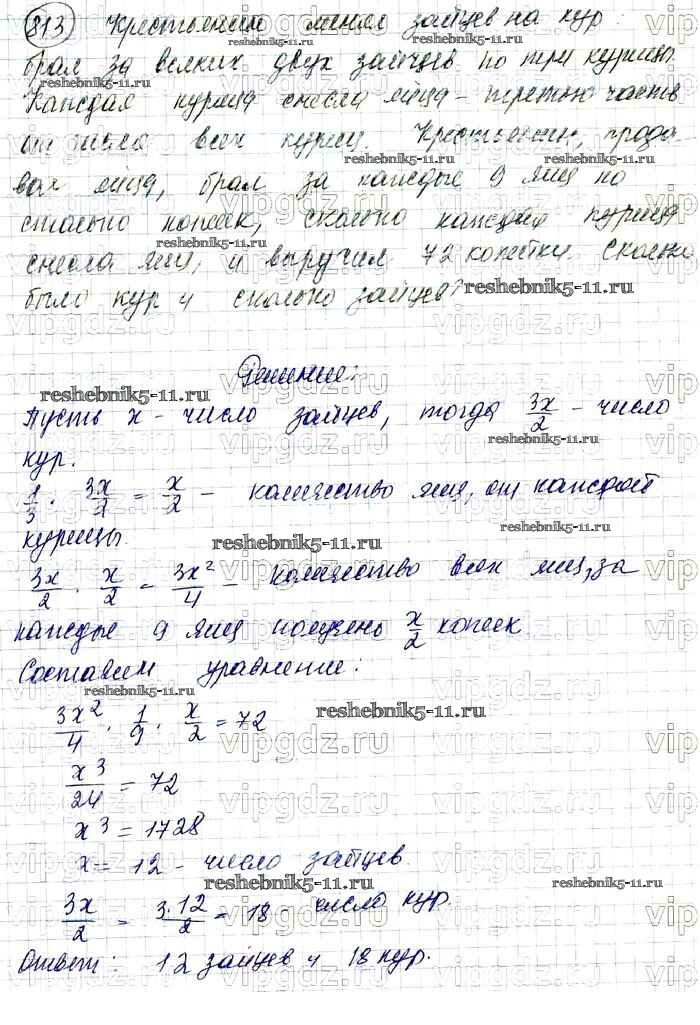 813 Крестьянин менял зайцев на кур:
брал за всяких двух зайцев по три курицы.
Каждая курица снесла яйца – третью часть
от числа всех куриц. Крестьянин, прода-
reshebnik5-11.ru
вая яйца, брал за каждые 9 яиц по
столько копеек, сколько каждая курица
снесла яиц, и выручил 72 копейки. Сколько
было кур и сколько зайцев?
reshebnik5-11.ru
Решение:
reshebnik5-11.ru
Пусть x – число зайцев, тогда 3x/2 – число
кур.
1/3 · 3x/2 = x/2 – количество яиц, от каждой
курицы.
reshebnik5-11.ru
3x/2 · x/2 = 3x²/4 – количество всех яиц, за
каждые 9 яиц получено x/2 копеек
Составим уравнение:
reshebnik5-11.ru
3x²/4 · 1/9 · x/2 = 72
reshebnik5-11.ru
x³/24 = 72
x³ = 1728
x = 12 – число зайцев.
reshebnik5-11.ru
3x/2 = 3·12/2 = 18 число кур.
Ответ: 12 зайцев и 18 кур.
vipgdz.ru